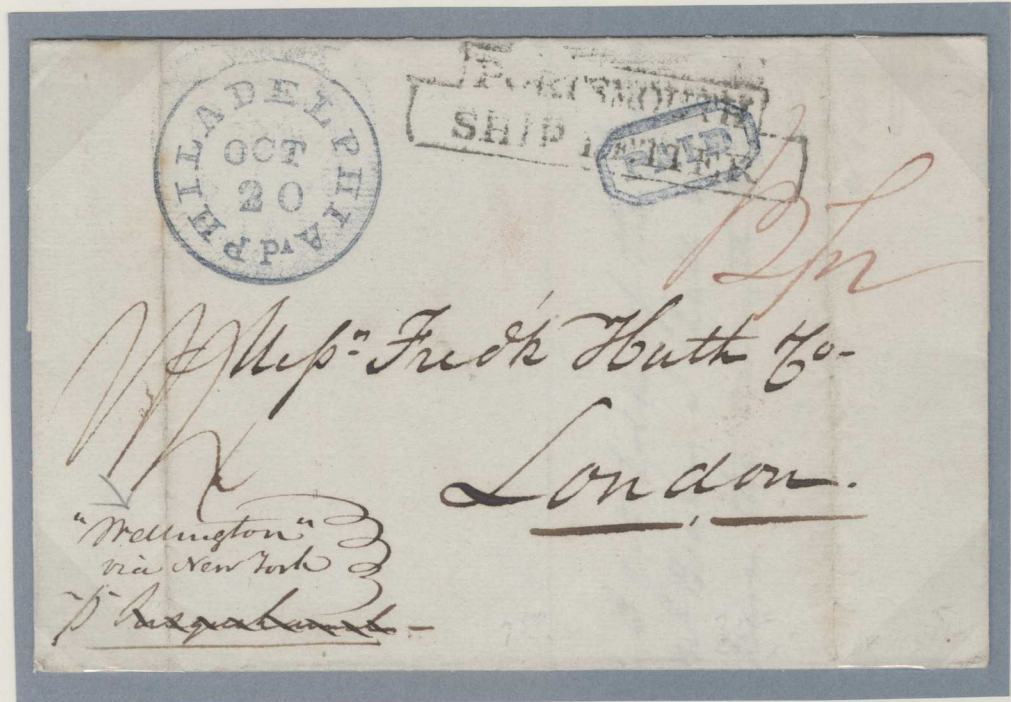 PHILADELPHIA Pᴬ
OCT
20
PORTSMOUTH
SHIP LETTER
PAID
Messʳˢ Fredk Huth & Co-
London.
"Wellington"
via New York